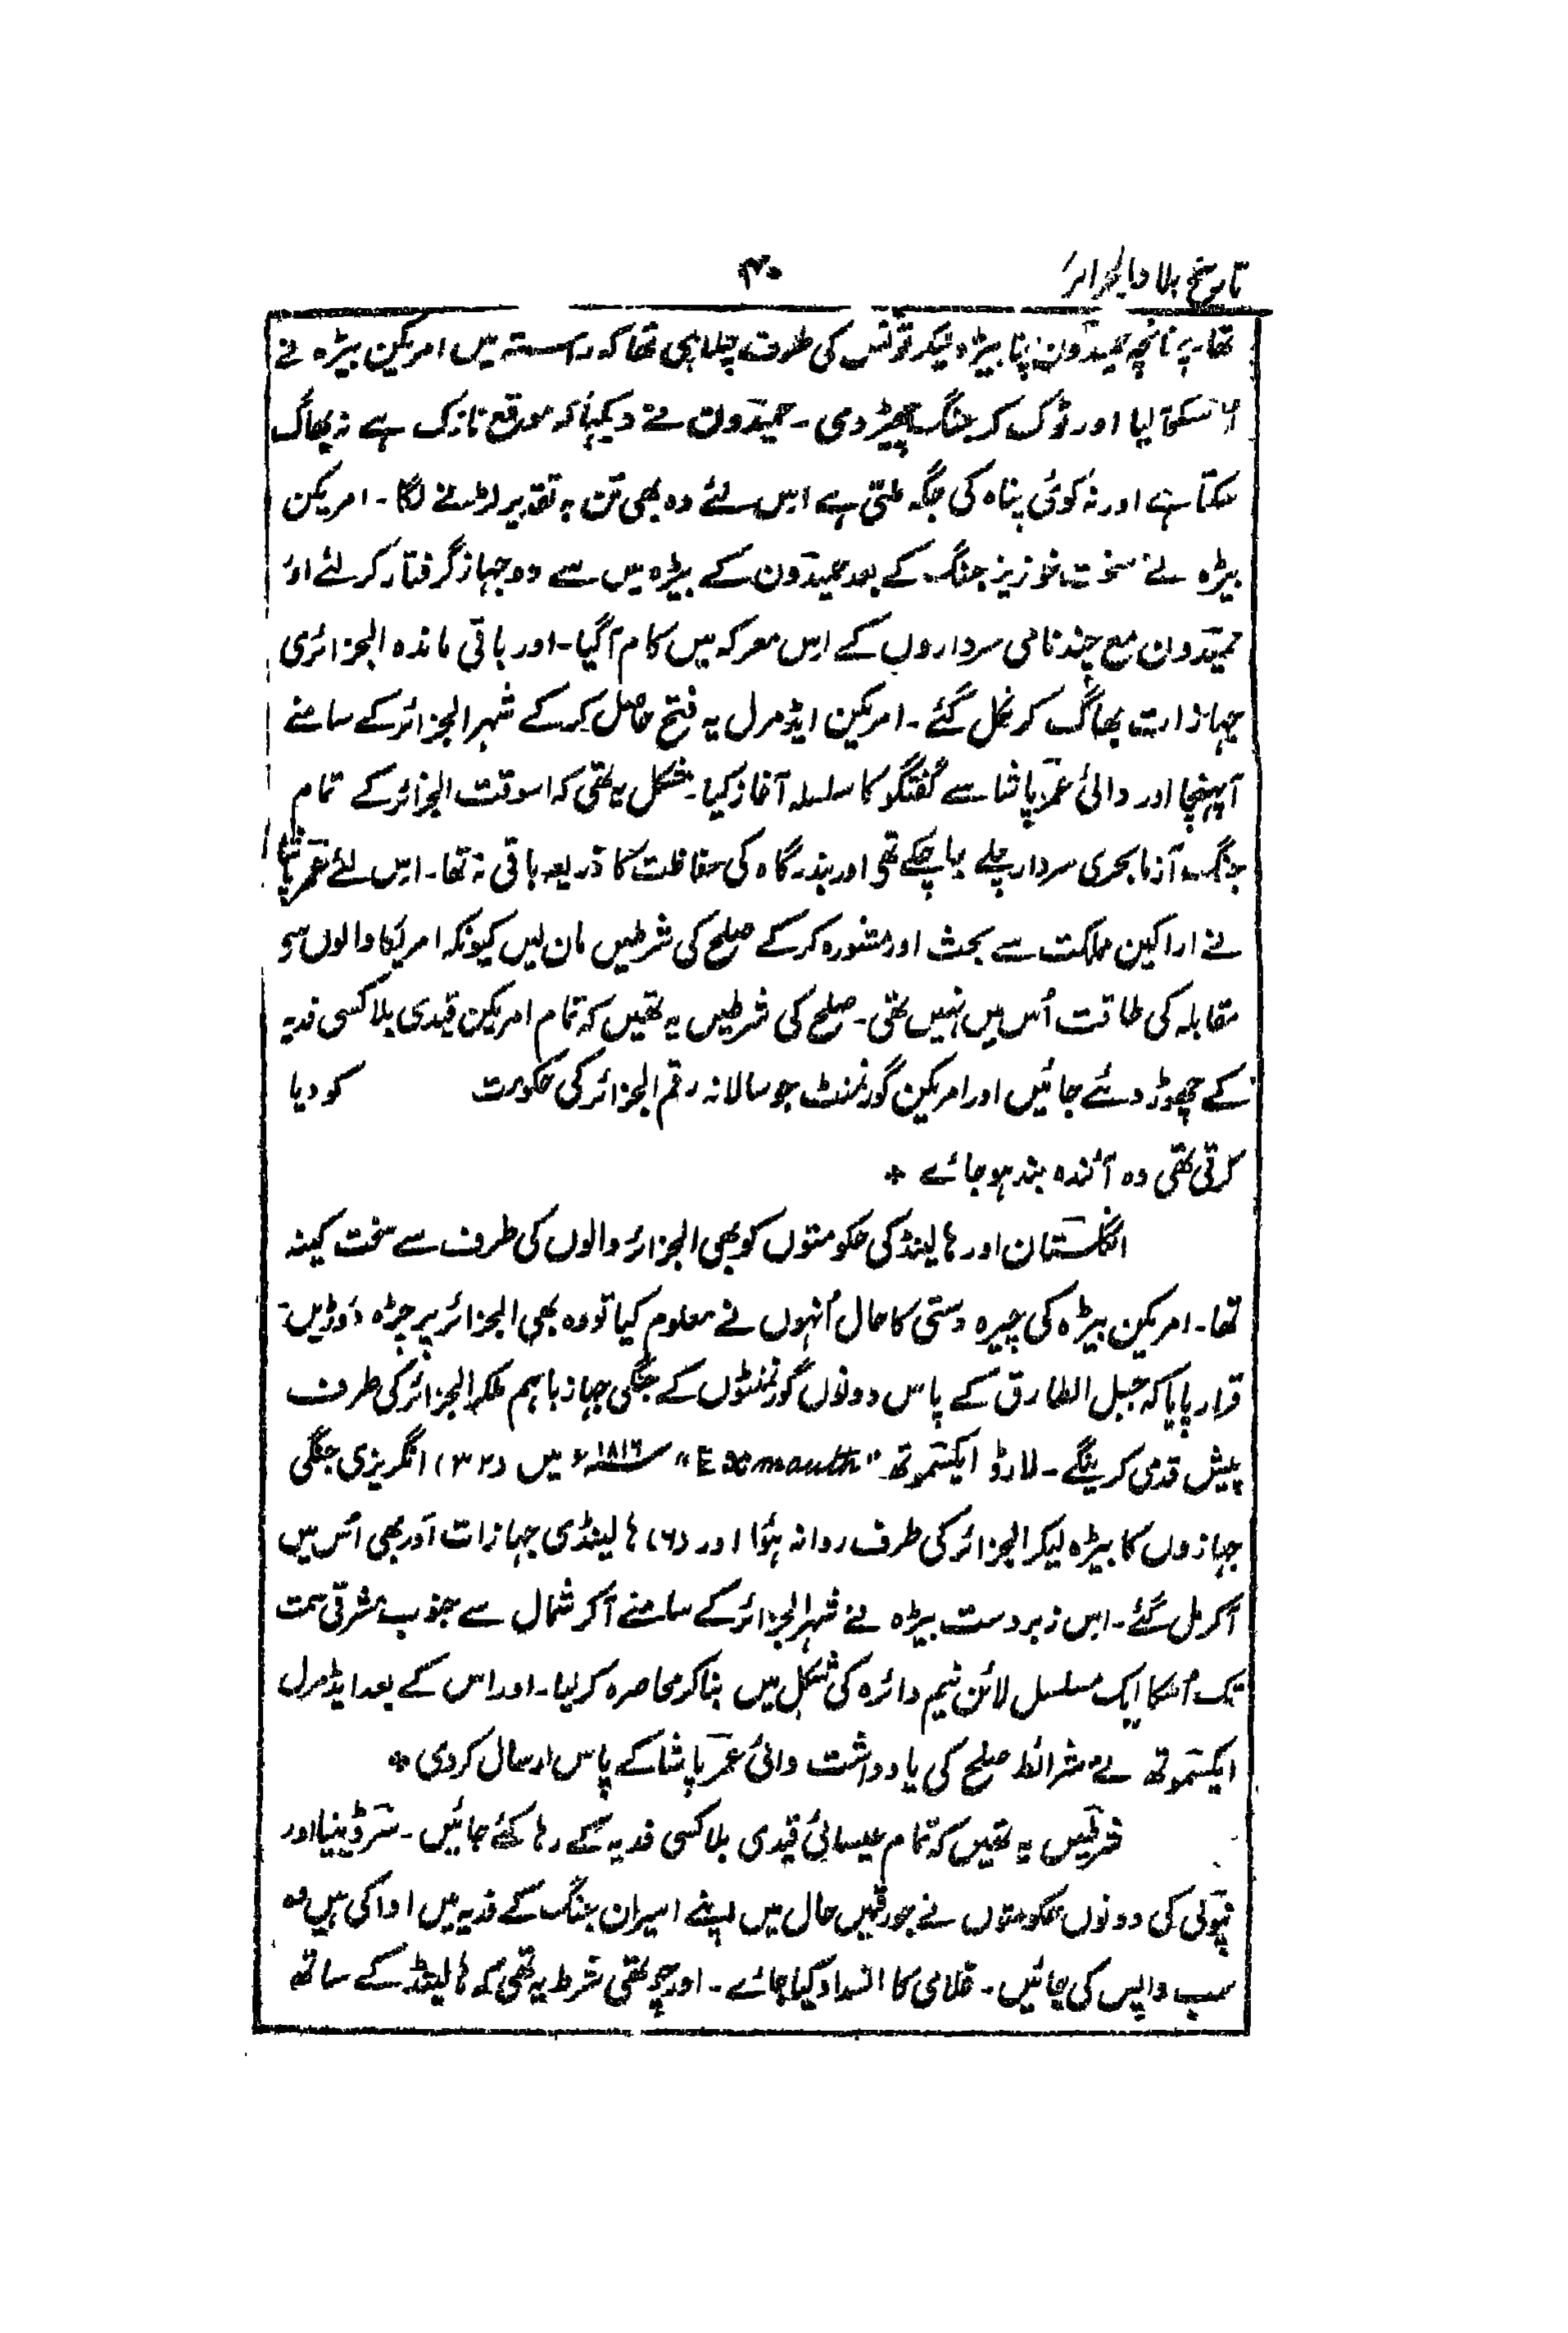 تاریخ بلاد الجزائر
۳۰
تھا۔ چنانچہ حمیدون اپنا بیڑہ لیکر ٹونس کی طرف چلا ہی تھا کہ راستہ میں امریکن بیڑہ نے
اُسکو آلیا اور ٹوک کر جنگ چھیڑ دی۔ حمیدون نے دیکہا کہ موقع نازک ہے نہ بھاگ
سکتا ہے اور نہ کوئی پناہ کی جگہ ملتی ہے اِس لئے وہ بھی تن بہ تقدیر لڑنے لگا۔ امریکن
بیڑہ نے سخت خونریز جنگ کے بعد حمیدون کے بیڑہ میں سے دو جہاز گرفتار کر لئے اور
حمیدون مع چند نامی سرداروں کے اِس معرکہ میں کام آگیا۔ اور باقی ماندہ الجزائری
جہازات بھاگ کر نکل گئے۔ امریکن ایڈمرل یہ فتح حاصل کر کے شہر الجزائر کے سامنے
آپہنچا اور والئ عمر پاشا سے گفتگو کا سلسلہ آغاز کیا۔ مشکل یہ تھی کہ اسوقت الجزائر کے تمام
جنگ آزما بحری سردار چلے جا چکے تھی اور بندرگاہ کی حفاظت کا ذریعہ باقی نہ تھا۔ اِس لئے عمر پاشا
نے اراکین مملکت سے بحث اور مشورہ کر کے صلح کی شرطیں مان لیں کیونکہ امریکا والوں سی
مقابلہ کی طاقت اُس میں نہیں تھی۔ صلح کی شرطیں یہ تھیں کہ تمام امریکن قیدی بلا کسی فدیہ
کے چھوڑ دئے جائیں اور امریکن گورنمنٹ جو سالانہ رقم الجزائر کی حکومت کو دیا
کرتی تھی وہ آئندہ بند ہو جائے *
انگلستان اور ہالینڈ کی حکومتوں کو بھی الجزائر والوں کی طرف سے سخت کینہ
تھا۔ امریکن بیڑہ کی چیرہ دستی کا حال اُنہوں نے معلوم کیا تو وہ بھی الجزائر پر چڑہ دوڑیں۔
قرار پایا کہ جبل الطارق کے پاس دونوں گورنمنٹوں کے جنگی جہاز باہم ملکر الجزائر کی طرف
پیش قدمی کرینگے۔ لارڈ ایکسموتھ "Exmouth" سنہ ۱۸۱۶ء میں (۳۲) انگریزی جنگی
جہازوں کا بیڑہ لیکر الجزائر کی طرف روانہ ہؤا اور (۶) ہالینڈی جہازات اَور بھی اُس میں
آکر مل گئے۔ اِس زبردست بیڑہ نے شہر الجزائر کے سامنے آکر شمال سے جنوب مشرقی سمت
تک اُسکا ایک مسلسل لائن نیم دائرہ کی شکل میں بنا کر محاصرہ کر لیا۔ اور اس کے بعد ایڈمرل
ایکسموتھ نے شرائط صلح کی یادداشت والئ عمر پاشا کے پاس ارسال کر دی *
شرطیں یہ تھیں کہ تمام عیسائی قیدی بلا کسی فدیہ کے رہا کئے جائیں۔ سرڈینیا اور
نیپولی کی دونوں حکومتوں نے جو رقمیں حال میں اپنے اسیران جنگ کے فدیہ میں ادا کی ہیں وہ
سب واپس کی جائیں۔ غلامی کا انسداد کیا جائے۔ اور چوتھی شرط یہ تھی کہ ہالینڈ کے ساتھ